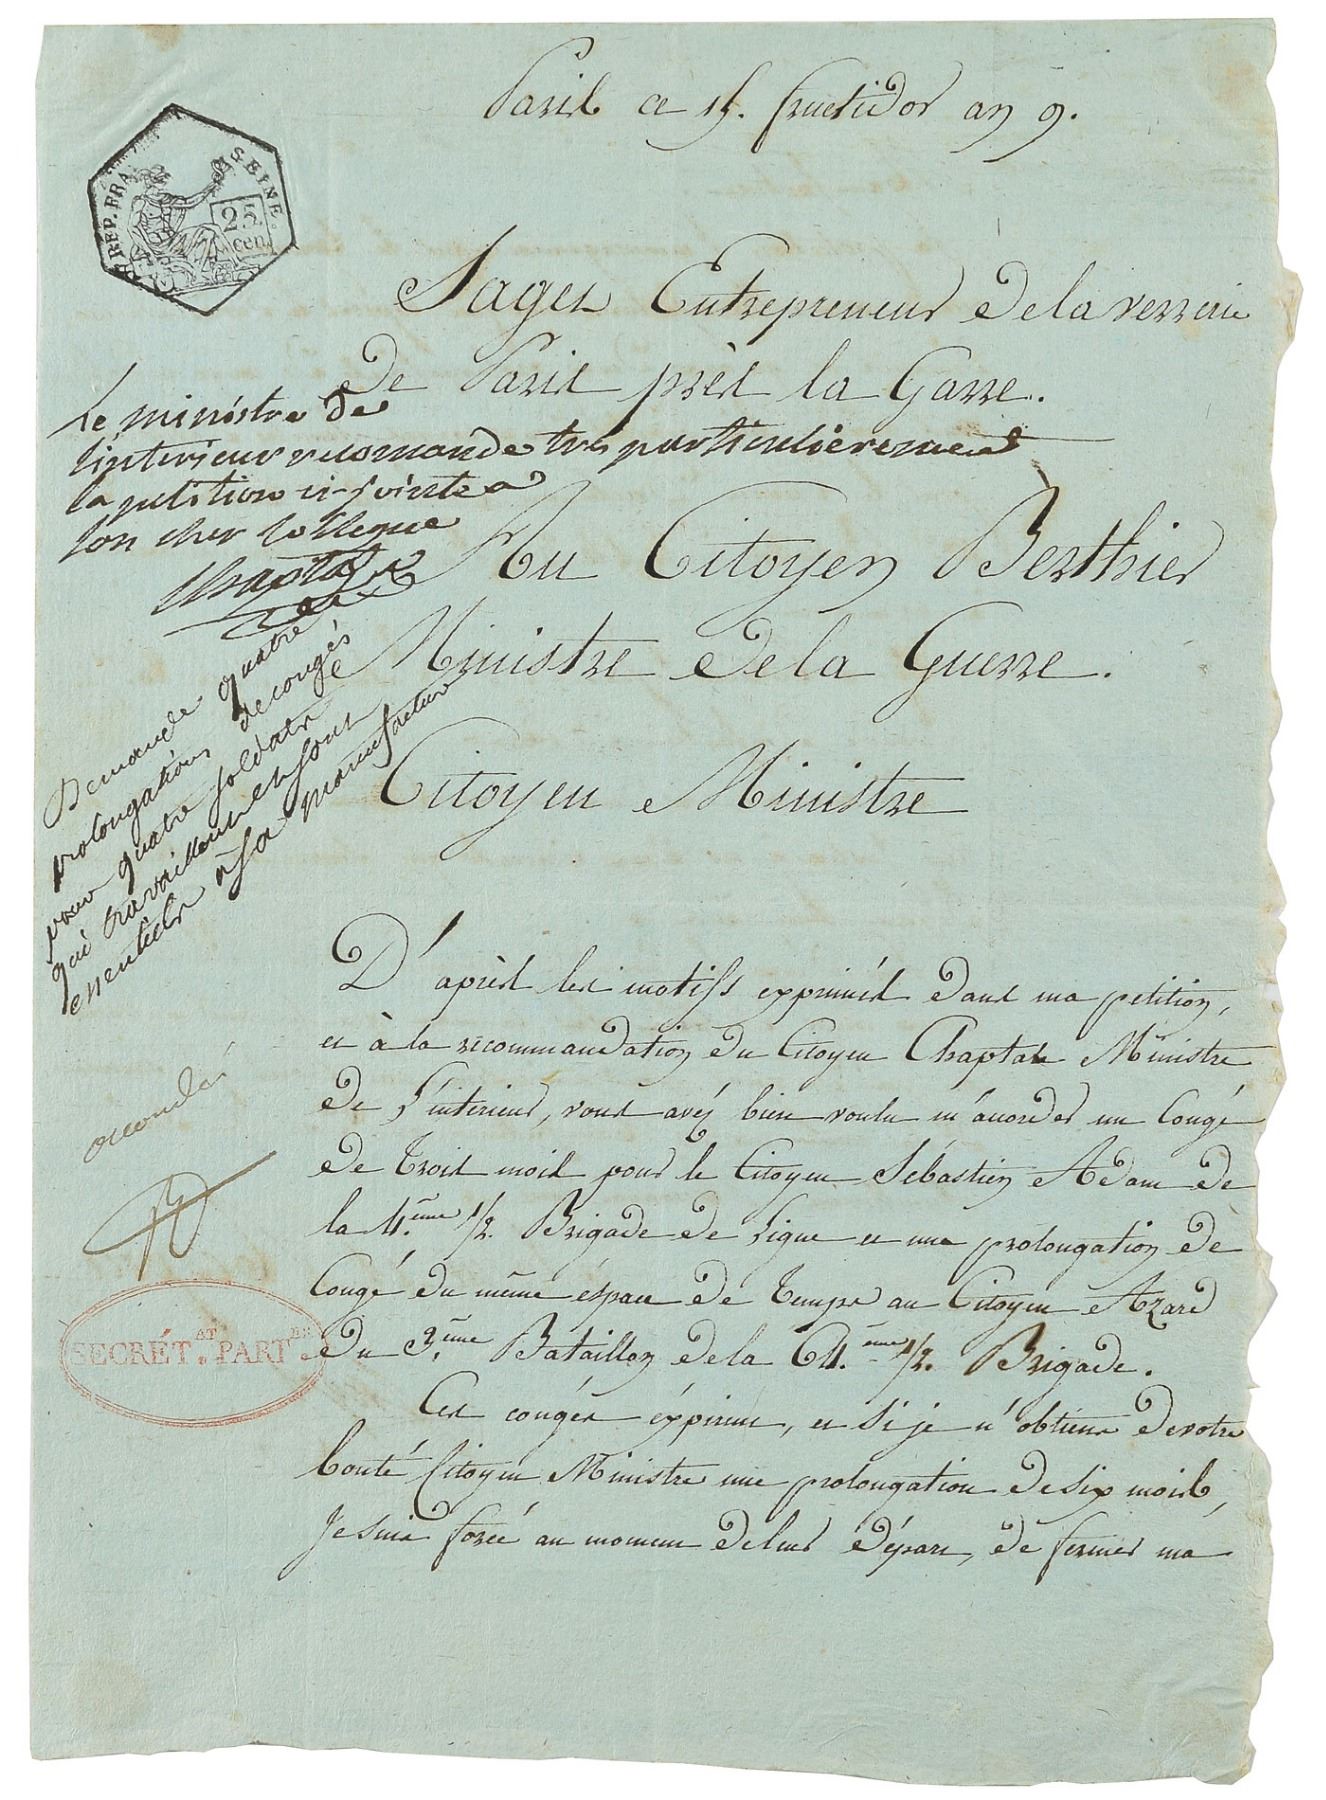 Paris ce 15. fructidor an 9.
REP. FRA. SEINE.
25
cen.
Sages Entrepreneur de la verrerie
de Paris près la Garre.
Le ministre de
l'interieur recomande très particulièrement
la petition ci-jointe a
son cher collegue
Chaptal
Au Citoyen Berthier
Ministre de la Guerre.
Demande quatre
prolongations de congés
pour quatre soldats
qui travaillent et sont
essentiels à sa manufacture
Citoyen Ministre
D'après les motifs exprimés dans ma petition,
et à la recommandation du Citoyen Chaptal Ministre
de l'interieur, vous avéz bien voulu m'accorder un Congé
de trois mois pour le Citoyen Sébastien Adam de
la 4.ème 1/2. Brigade de Ligne et une prolongation de
Congé du même éspace de temps au Citoyen Azard
du 3.ème Bataillon de la 64.ème 1/2. Brigade.
accordé
SECRÉT.AT PART.ER
Ces congés éxpirent, et si je n'obtiens de votre
bonté Citoyen Ministre une prolongation de six mois,
Je suis forcé au moment de leur départ, de fermer ma